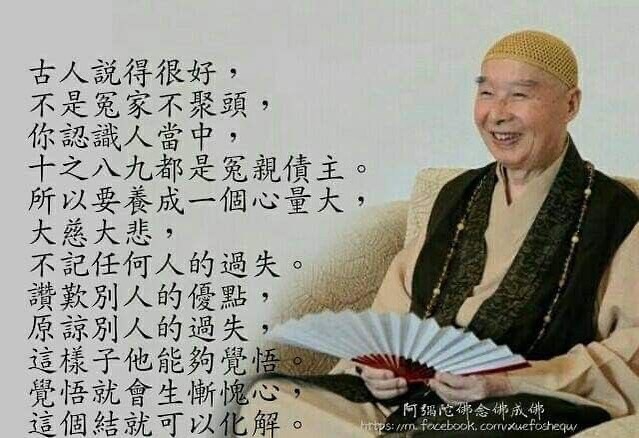 古人說得很好，
不是冤家不聚頭，
你認識人當中，
十之八九都是冤親債主。
所以要養成一個心量大，
大慈大悲，
不記任何人的過失。
讚歎別人的優點，
原諒別人的過失，
這樣子他能夠覺悟。
覺悟就會生慚愧心，
這個結就可以化解。
阿彌陀佛念佛成佛
https://m.facebook.com/xuefoshequ/